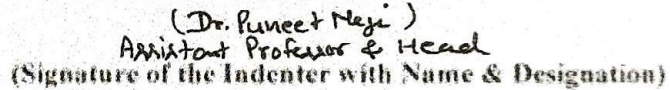 (Dr. Puneet Negi)
Assistant Professor & Head
(Signature of the Indenter with Name & Designation)